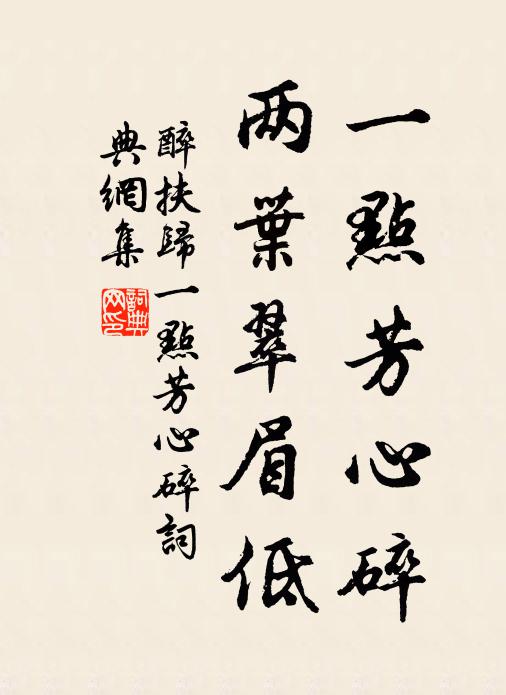 一點芳心碎
兩葉翠眉低
醉扶歸一點芳心碎詞
典網集
詞典
网印